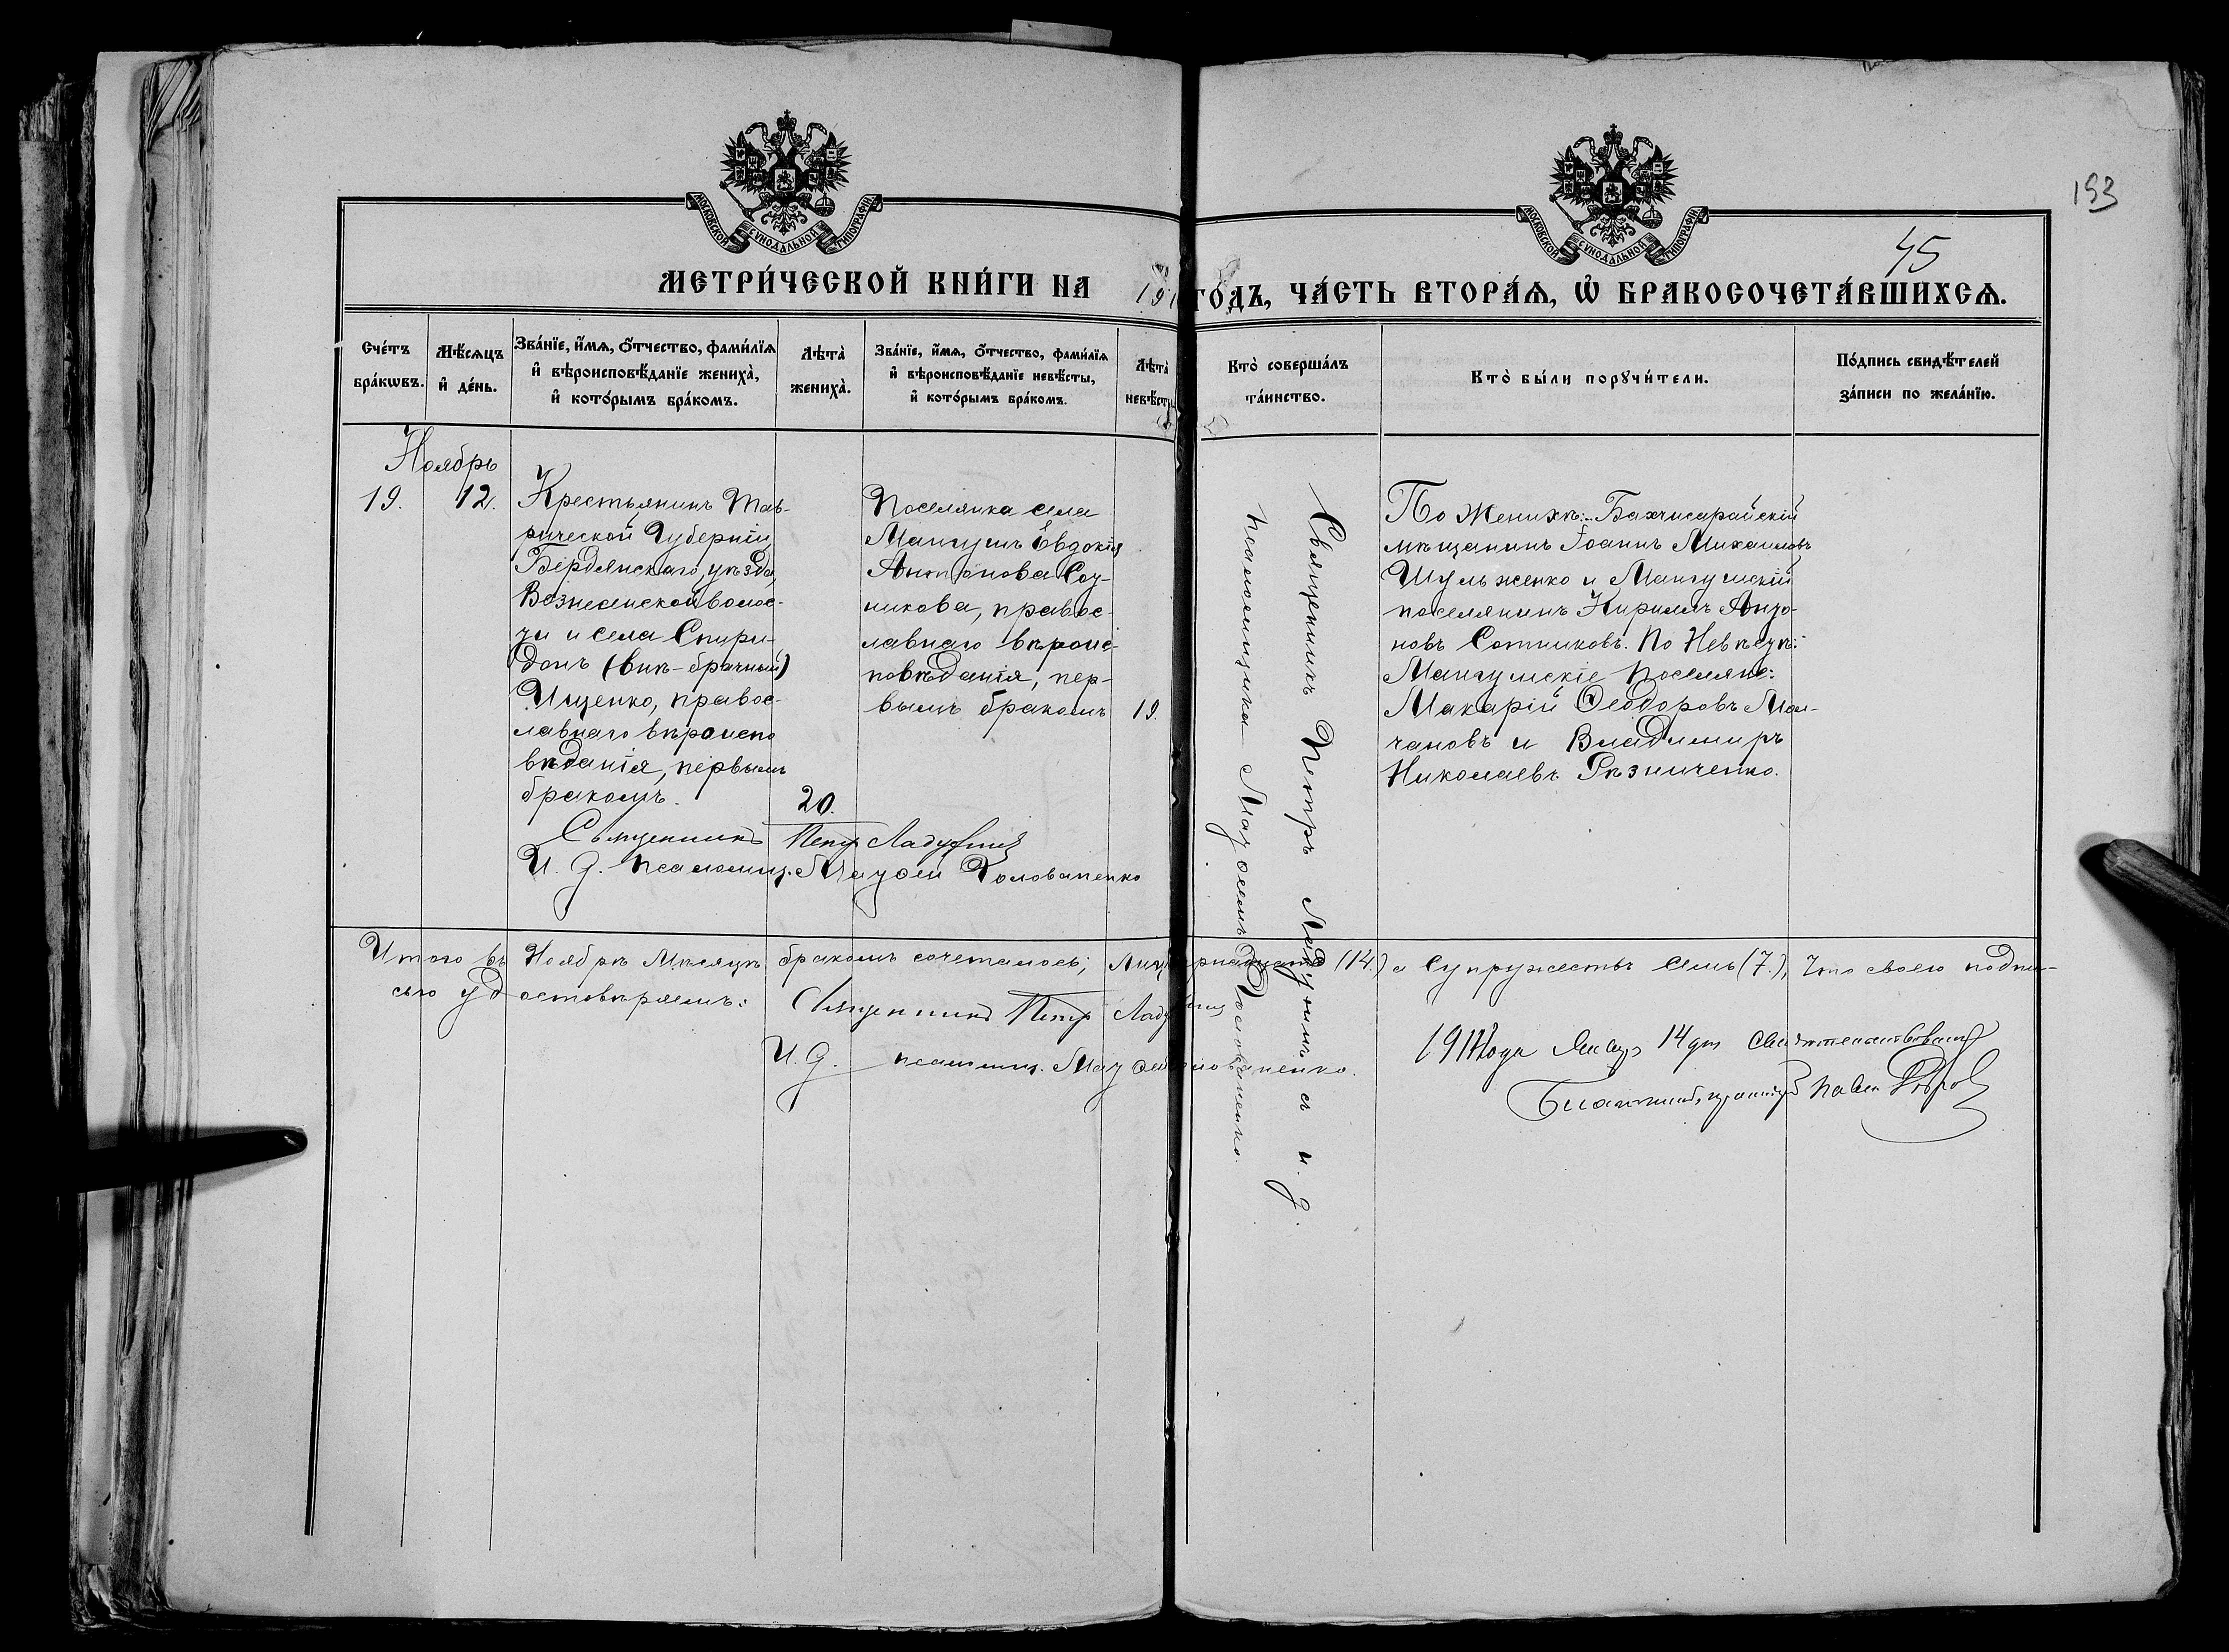 193
45
МОСКОВСКОЙ СѴНОДАЛЬНОЙ ТИПОГРАФІИ
МОСКОВСКОЙ СѴНОДАЛЬНОЙ ТИПОГРАФІИ
МЕТРИ́ЧЕСКОЙ КНИ́ГИ НА 191 ГО́ДЪ, ЧА́СТЬ ВТОРА́Ѧ, Ѽ БРАКОСОЧЕТА́ВШИХСѦ.
Счéтъ
брáкѡвъ.
Мѣ́сѧцъ
и҆ де́нь.
Звáнїе, и҆́мѧ, ѻ҆́тчество, фами́лїѧ
и҆ вѣроисповѣ́данїе женихà,
и҆ кото́рымъ брáкомъ.
Лѣтà
женихà.
Звáнїе, и҆́мѧ, ѻ҆́тчество, фами́лїѧ
и҆ вѣроисповѣ́данїе невѣ́сты,
и҆ кото́рымъ брáкомъ.
Лѣтà
невѣ́сты
Ктò совершáлъ
тáинство.
Ктò бы́ли порꙋчи́тели.
По́дпись свидѣ́телей
зáписи по желáнїю.
Ноябрь
19.
12.
Крестьянинъ Тав-
рической Губерніи
Бердянскаго уѣзда,
Вознесенской волос-
ти и села Спири-
донъ (внѣ-брачный)
Ищенко, правос-
лавнаго вѣроиспо
вѣданія, первымъ
бракомъ.
20.
Поселянка села
Мангушъ Евдокія
Антонова Сот-
никова, правос-
лавнаго вѣроис-
повѣданія, пер-
вымъ бракомъ
19.
Священникъ Петръ Ладухинъ съ и. д.
псаломщика Матѳеемъ Головшненко.
По Женихѣ: Бахчисарайскій
мѣщанинъ Іоаннъ Михаиловъ
Шульженко и Мангушскій
поселянинъ Кириллъ Анто-
новъ Сотниковъ. По Невѣстѣ:
Мангушскіе Поселяне:
Макарій Ѳеодоровъ Мол-
чановъ и Владимиръ
Николаевъ Рѣзниченко.
Священникъ Петръ
И. д. псаломщ. Матѳей
Итого въ Ноябрѣ Мѣсяцѣ бракомъ сочеталось; Лицъ четырнадцать (14.) а Супружествъ Семь (7.), Что своею подпи-
сью удостовѣряемъ: Священникъ Петръ
И. д. псаломщ. Матѳей
191 года Янв 14 дня свидѣтельствовалъ
Благочинный, священникъ Павелъ